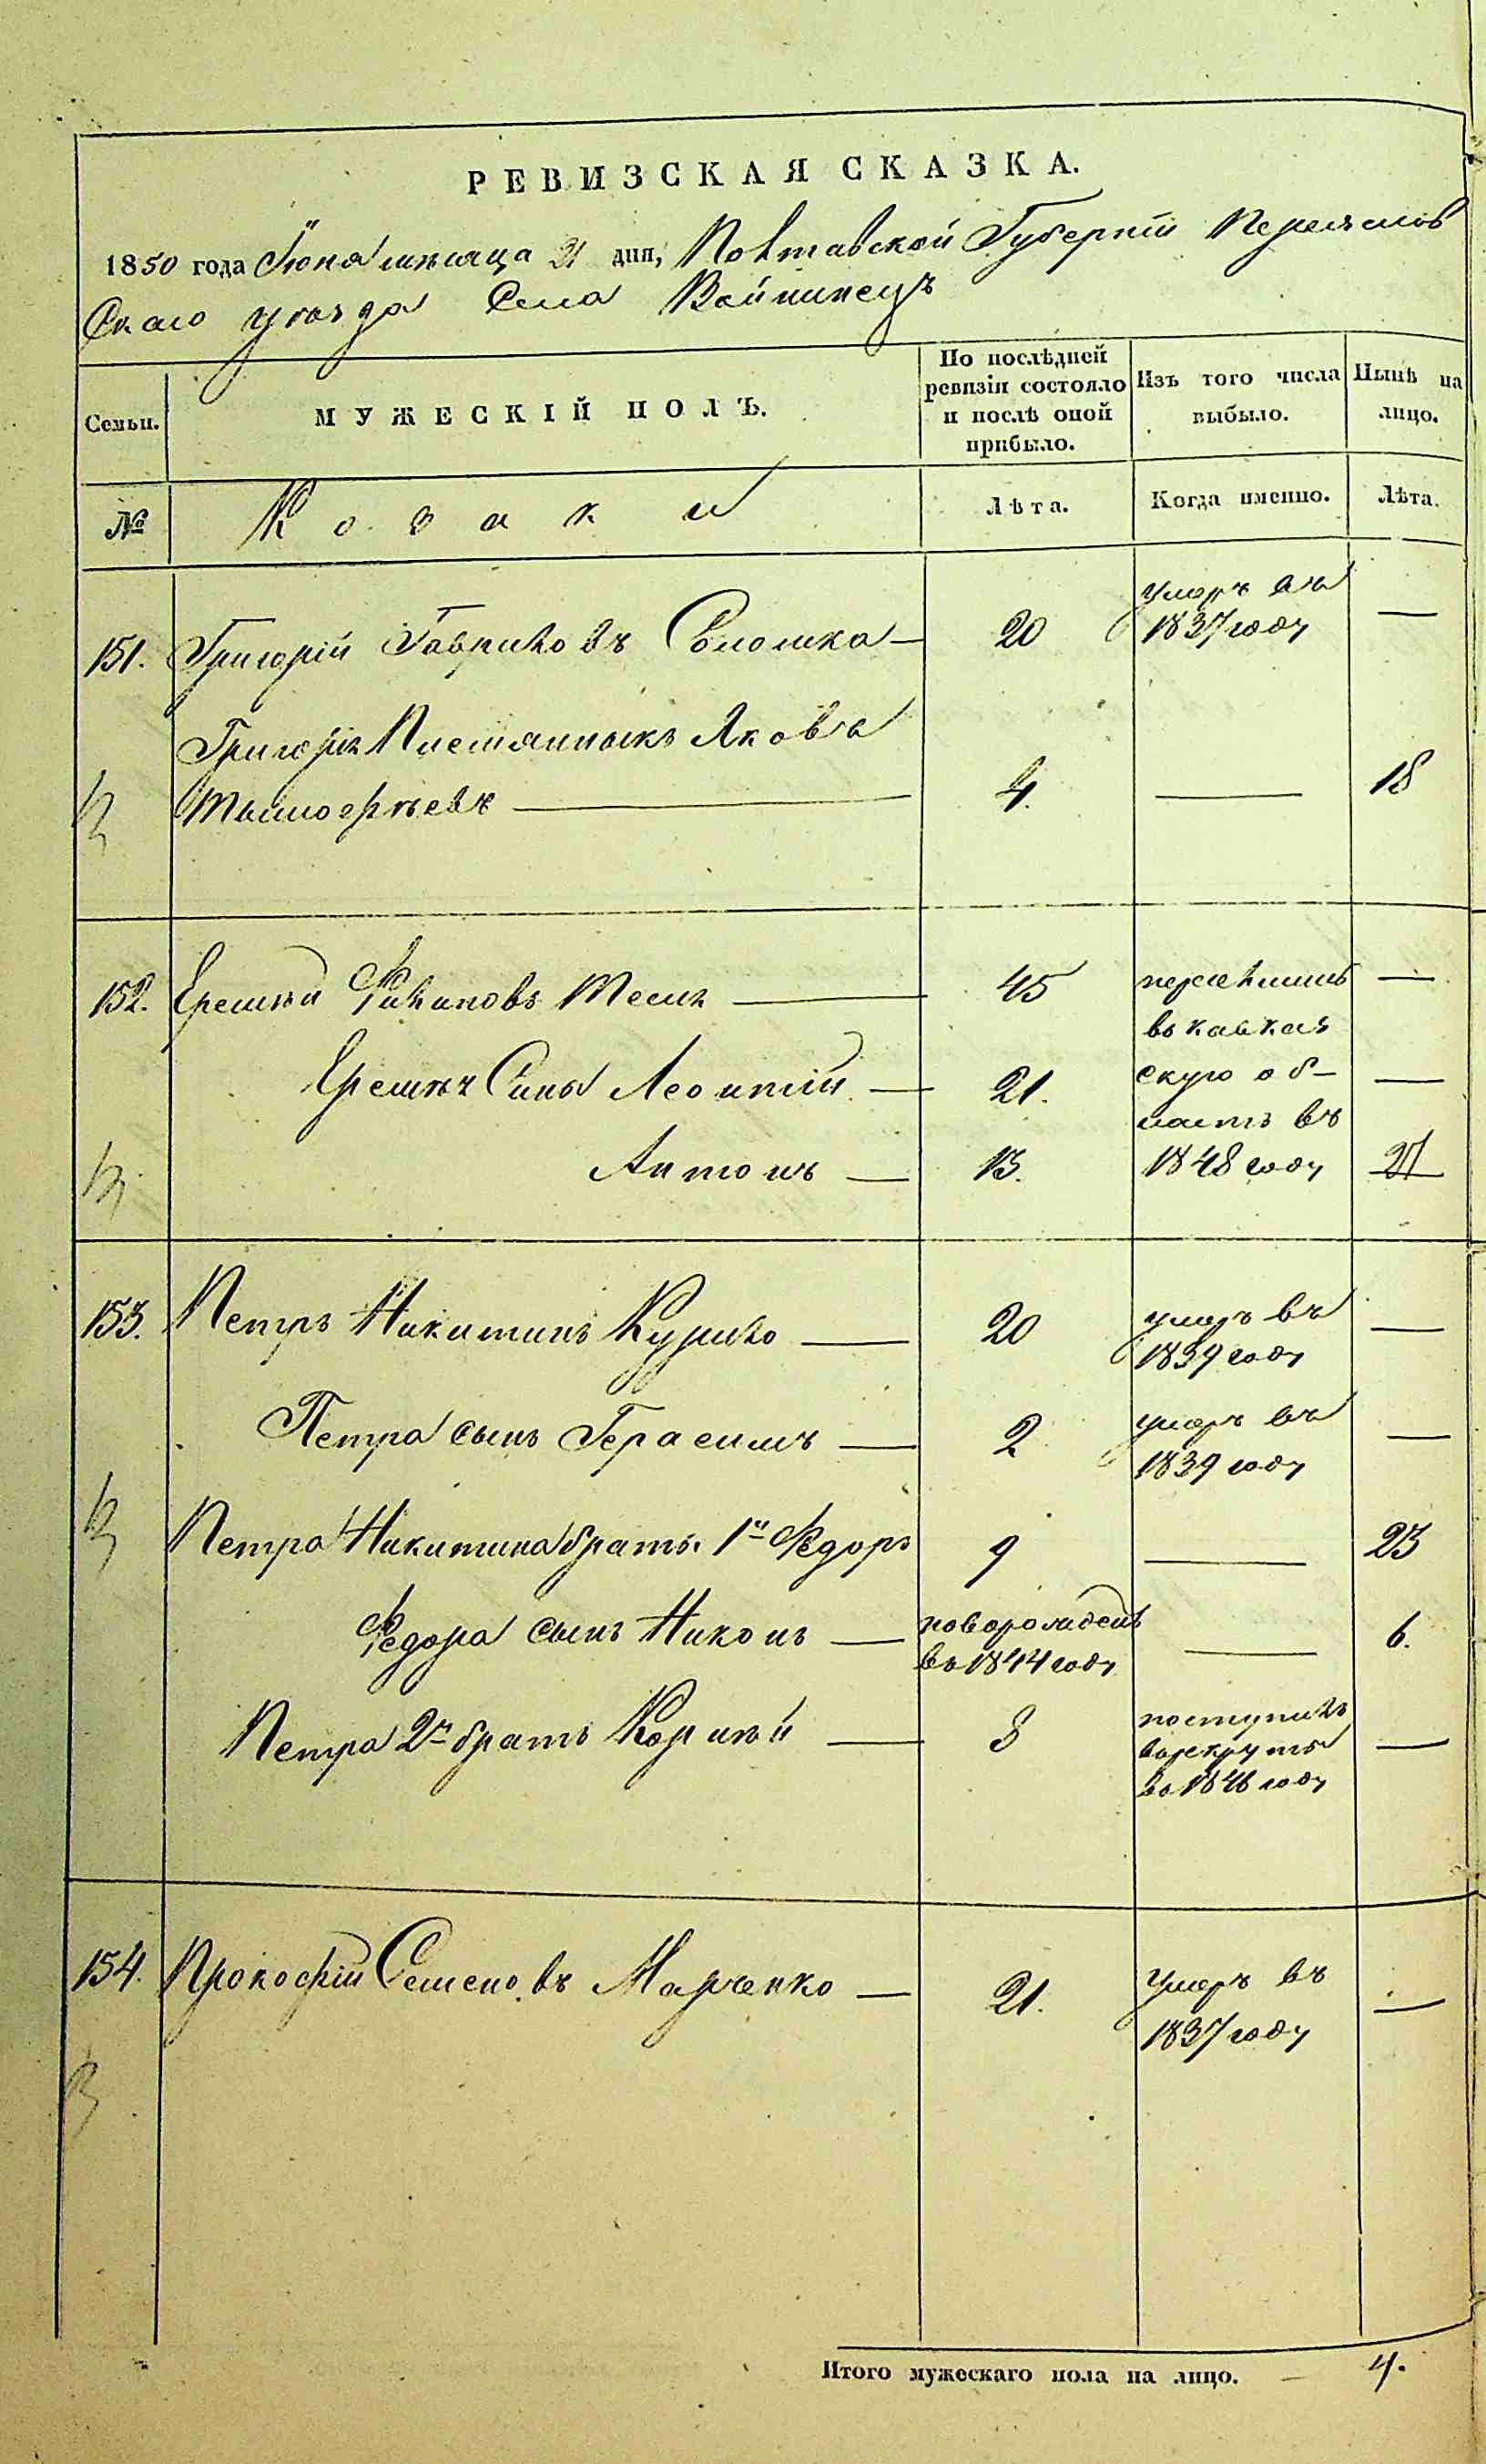 РЕВИЗСКАЯ СКАЗКА.
1850 года Іюня мѣсяца 21 дня, Полтавской Губерніи Переяслов
скаго уѣзда Села Войнинецъ
Семьи. МУЖЕСКІЙ ПОЛЪ. По послѣдней ревизіи состояло и послѣ оной прибыло. Изъ того числа выбыло. Нынѣ на лицо.
№ Козаки Лѣта. Когда именно. Лѣта.
151. Григорій Гавриловъ Соломка — 20 умеръ въ 1837 году —
Григорія Яковъ
Тимофѣевъ — 4. — 18
152. Еремѣй — 45 —
переселились
въ кавказ
Еремѣя Сины Леонтій — 21. —
скую об-
ласть въ
Антонъ — 13. 1848 году 27
153. Петръ Никитинъ Курило — 20 умеръ въ 1839 году —
Петра сынъ Герасимъ — 2 умеръ въ 1839 году —
Петра Никитина братъ 1й Федоръ 9 — 23
Федора сынъ Никонъ — новорожденъ въ 1844 году — 6.
Петра 2й братъ Корнѣй — 8 поступилъ
в рекруты
въ 1846 году —
154. Прокофій Семеновъ Марченко — 21. умеръ въ 1837 году —
Итого мужескаго пола на лицо. — 4.